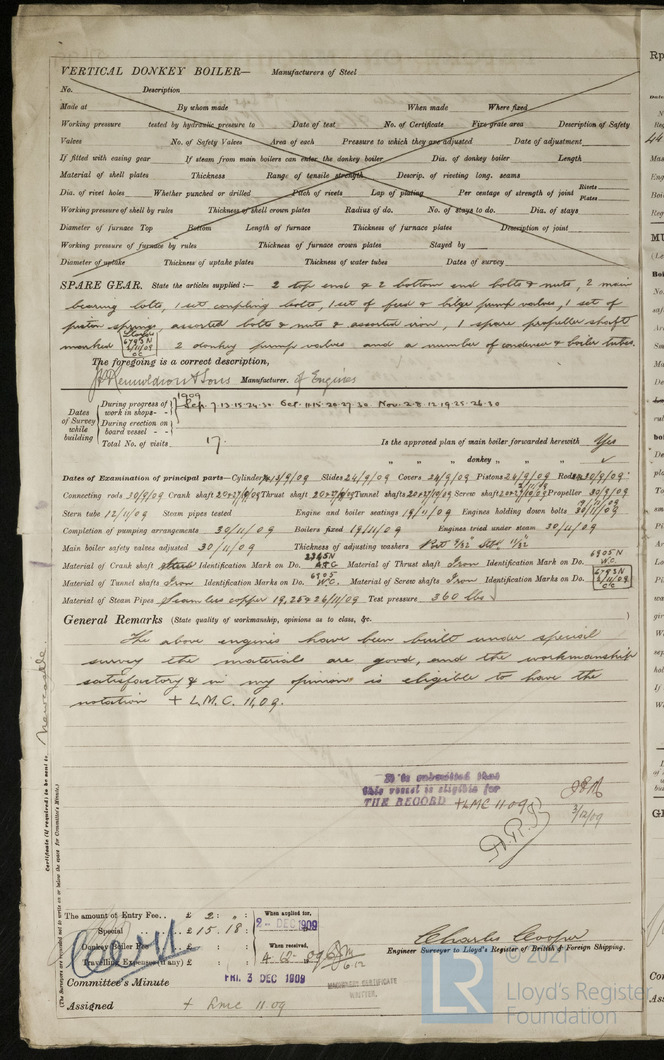 VERTICAL DONKEY BOILER— Manufacturers of Steel
No. Description
Made at By whom made When made Where fixed
Working pressure tested by hydraulic pressure to Date of test No. of Certificate Fire grate area Description of Safety
Valves No. of Safety Valves Area of each Pressure to which they are adjusted Date of adjustment
If fitted with easing gear If steam from main boilers can enter the donkey boiler Dia. of donkey boiler Length
Material of shell plates Thickness Range of tensile strength Descrip. of riveting long. seams
Dia. of rivet holes Whether punched or drilled Pitch of rivets Lap of plating Per centage of strength of joint Rivets Plates
Working pressure of shell by rules Thickness of shell crown plates Radius of do. No. of stays to do. Dia. of stays
Diameter of furnace Top Bottom Length of furnace Thickness of furnace plates Description of joint
Working pressure of furnace by rules Thickness of furnace crown plates Stayed by
Diameter of uptake Thickness of uptake plates Thickness of water tubes Dates of survey
SPARE GEAR. State the articles supplied :— 2 top end & 2 bottom end bolts & nuts, 2 main
bearing bolts, 1 set coupling bolts, 1 set of feed & bilge pump valves, 1 set of
piston springs, assorted bolts & nuts & assorted iron, 1 spare propeller shaft
marked Lloyds 6793N 2 donkey pump valves and a number of condenser & boiler tubes.
The foregoing is a correct description,
& Sons Manufacturer. of Engines
Dates of Survey while building
During progress of work in shops - - 1909 Sep. 7.13.15.24.30 Oct. 11.15.20.27.30 Nov. 2.8.12.19.25.26.30
During erection on board vessel - - -
Total No. of visits 17. Is the approved plan of main boiler forwarded herewith Yes
" " " donkey " " "
Dates of Examination of principal parts—Cylinders 13/9/09 Slides 24/9/09 Covers 24/9/09 Pistons 24/9/09 Rods 30/9/09
Connecting rods 30/9/09 Crank shaft Thrust shaft Tunnel shafts Screw shaft Propeller 30/9/09
Stern tube 12/11/09 Steam pipes tested Engine and boiler seatings 19/11/09 Engines holding down bolts 30/11/09
Completion of pumping arrangements 30/11/09 Boilers fixed 19/11/09 Engines tried under steam 30/11/09
Main boiler safety valves adjusted 30/11/09 Thickness of adjusting washers
Material of Crank shaft Steel Identification Mark on Do. 2345N Material of Thrust shaft Iron Identification Mark on Do. 6905N W.C.
Material of Tunnel shafts Iron Identification Marks on Do. 6905 W.C. Material of Screw shafts Iron Identification Marks on Do. 6793N
Material of Steam Pipes Seamless copper 19, 25 & 26/11/09 Test pressure 360 lbs
General Remarks (State quality of workmanship, opinions as to class, &c. )
The above engines have been built under special
survey the materials are good, and the workmanship
satisfactory & in my opinion is eligible to have the
notation + L.M.C. 11,09.
It is submitted that
this vessel is eligible for
THE RECORD +LMC 11.09
3/12/09
Certificate (if required) to be sent to Newcastle
(The Surveyors are requested not to write on or below the space for Committee's Minute.)
The amount of Entry Fee.. £ 2 : " : When applied for,
Special .. £ 15 . 18 : 2 - DEC 1909
Donkey Boiler Fee .. £ : : When received,
Travelling Expenses (if any) £ : :
Charles Cooper
Engineer Surveyor to Lloyd's Register of British & Foreign Shipping.
Committee's Minute FRI. 3 DEC 1909
MACHINERY CERTIFICATE
WRITTEN.
Assigned + Lmc 11.09
© 2021
LR
Lloyd's Register
Foundation